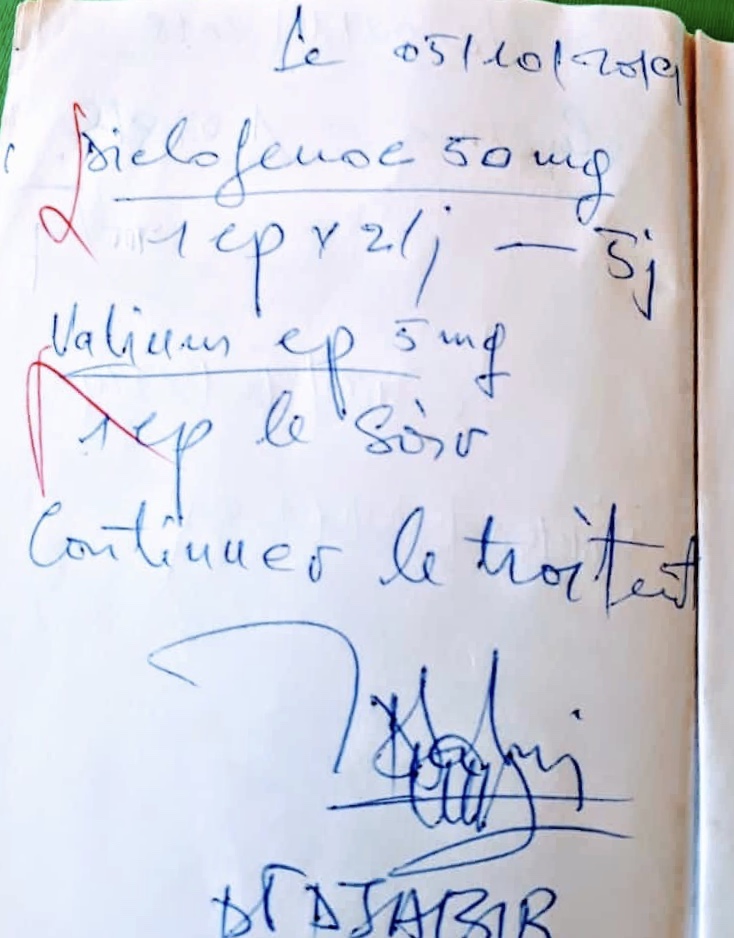 Le 05/10/2019
Diclofenac 50 mg
1 cp x 2/j — 5j
Valium cp 5 mg
1 cp le soir
Continuer le traitent
Dr DJABIR